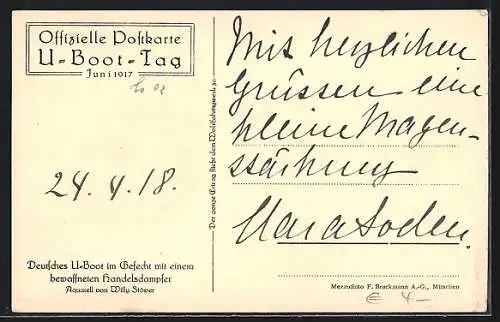 Offizielle Postkarte
U-Boot-Tag
Juni 1917
24. 4. 18.
Deutsches U-Boot im Gefecht mit einem
bewaffneten Handelsdampfer
Aquarell von Willy Stöwer
Der ganze Ertrag fließt dem Wohlfahrtszweck zu
Mit herzlichen
Grüssen eine
kleine Magen-
stärkung
Clara Soden.
Mezzotinto F. Bruckmann A.-G., München
€ 4-